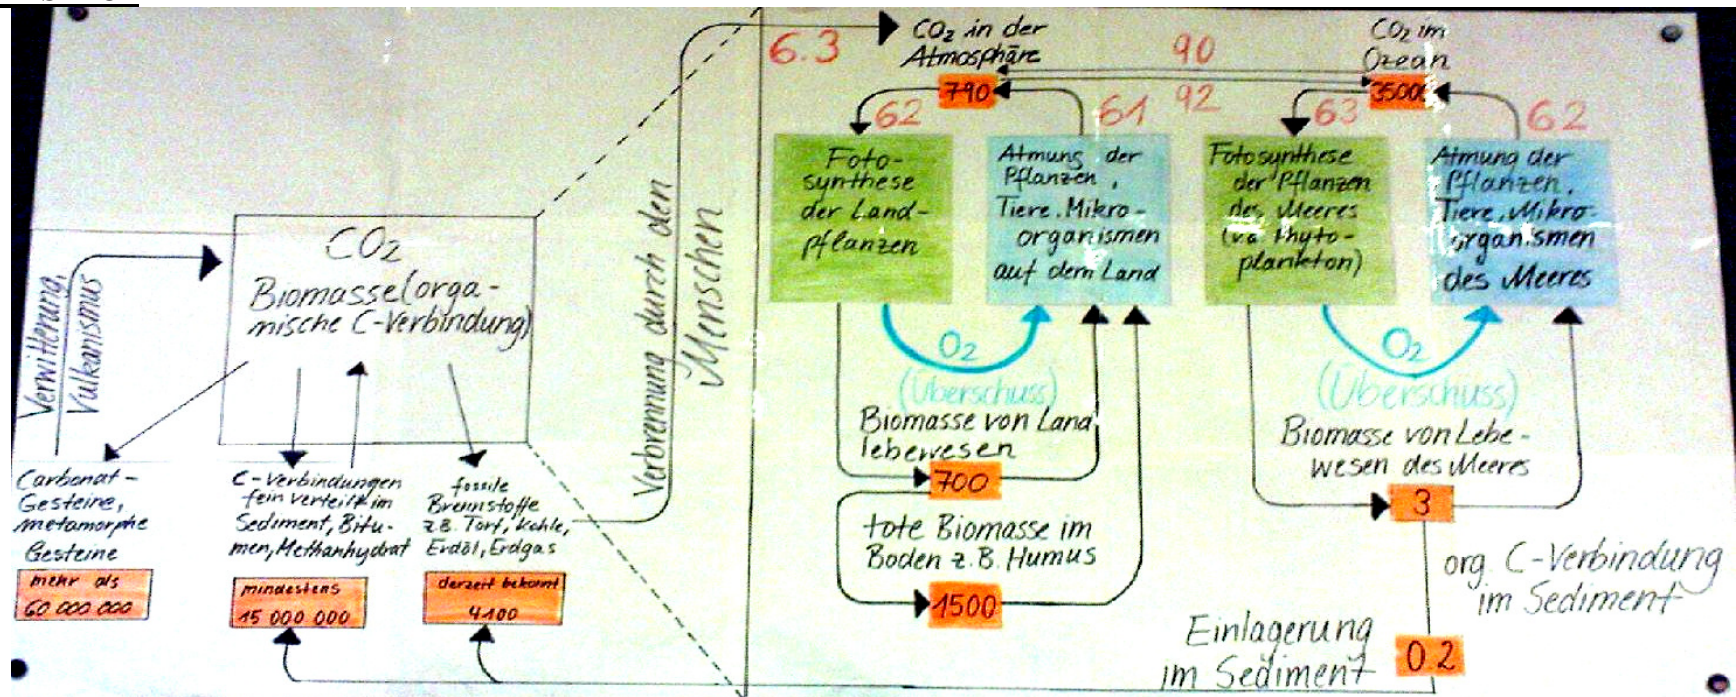 CO2
Biomasse (orga-
nische C-Verbindung)
Verwitterung,
Vulkanismus
Carbonat-
Gesteine,
metamorphe
Gesteine
mehr als
60 000 000
C-Verbindungen
fein verteilt im
Sediment, Bitu-
men, Methanhydrat
mindestens
15 000 000
fossile
Brennstoffe
z.B. Torf, Kohle,
Erdöl, Erdgas
derzeit bekannt
4100
Verbrennung durch den
Menschen
6.3
CO2 in der
Atmosphäre
790
90
92
CO2 im
Ozean
35000
62
61
63
62
Foto-
synthese
der Land-
pflanzen
Atmung der
Pflanzen,
Tiere, Mikro-
organismen
auf dem Land
Fotosynthese
der Pflanzen
des Meeres
(v.a. Phyto-
plankton)
Atmung der
Pflanzen,
Tiere, Mikro-
organismen
des Meeres
O2
(Überschuss)
O2
(Überschuss)
Biomasse von Land
lebewesen
700
tote Biomasse im
Boden z.B. Humus
1500
Biomasse von Lebe-
wesen des Meeres
3
org. C-Verbindung
im Sediment
Einlagerung
im Sediment
0.2